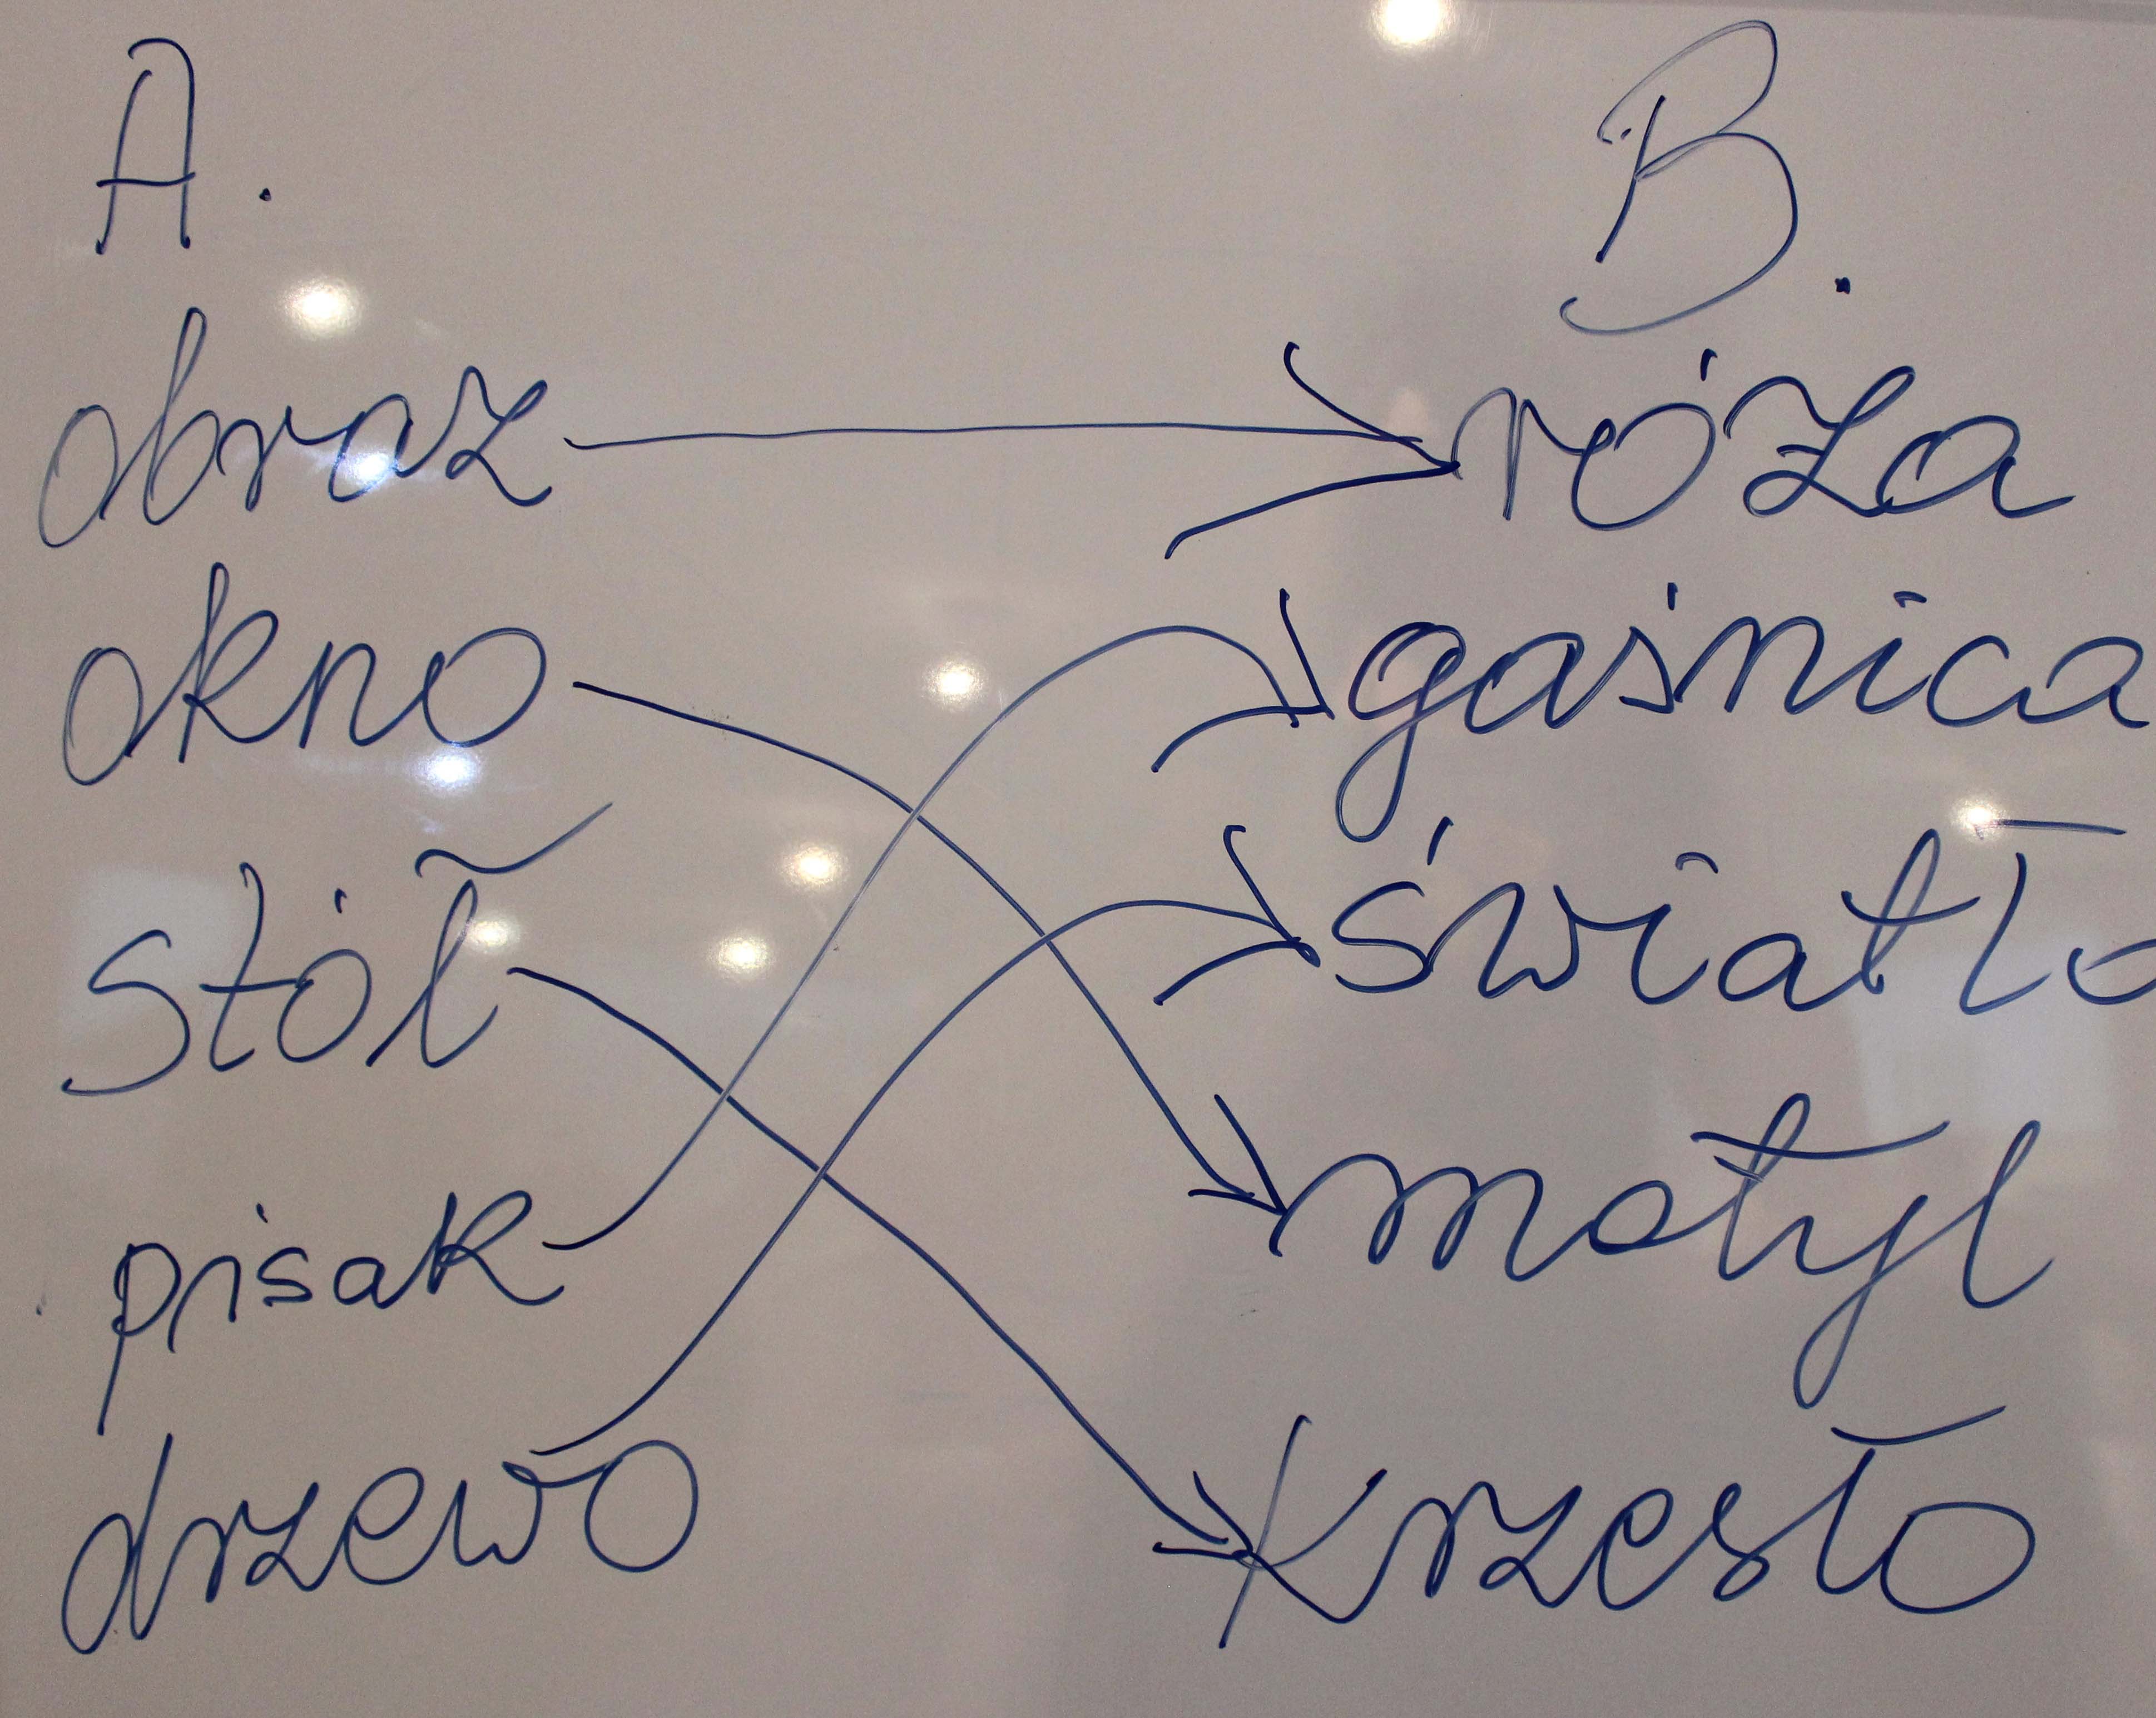 A. B.
obraz róża
okno gaśnica
stół światło
pisak motyl
drzewo krzesło